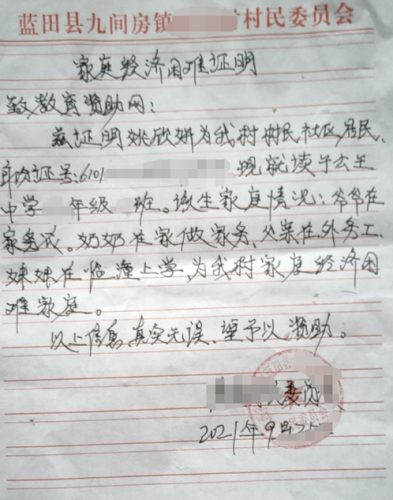 蓝田县九间房镇 村民委员会
家庭经济困难证明
致教育赞助网：
兹证明姚欣妍为我村村民社区居民、
身份证号：6101 现就读于玄王
中学 年级 班。该生家庭情况：爷爷在
家务农。奶奶在家做家务、父亲在外务工、
妹妹在临潼上学，为我村家庭经济困
难家庭。
以上信息真实无误，望予以赞助。
民委员
2021年9月